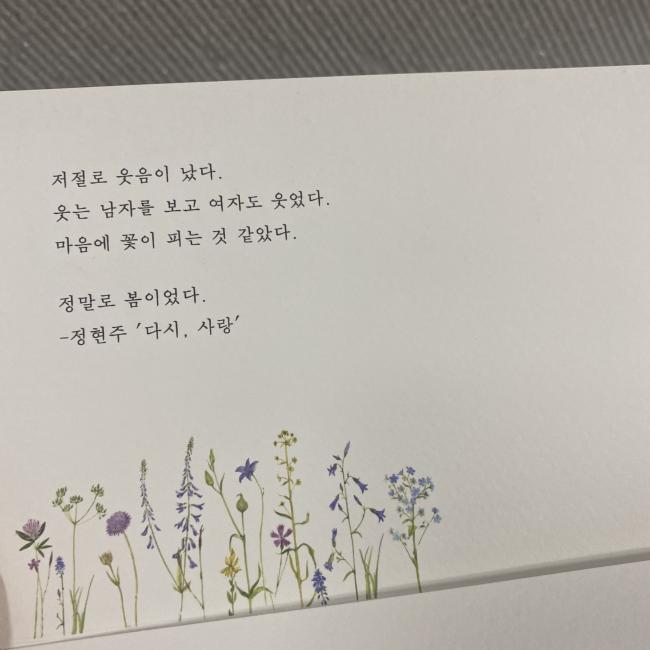 저절로 웃음이 났다.
웃는 남자를 보고 여자도 웃었다.
마음에 꽃이 피는 것 같았다.
정말로 봄이었다.
-정현주 '다시, 사랑'